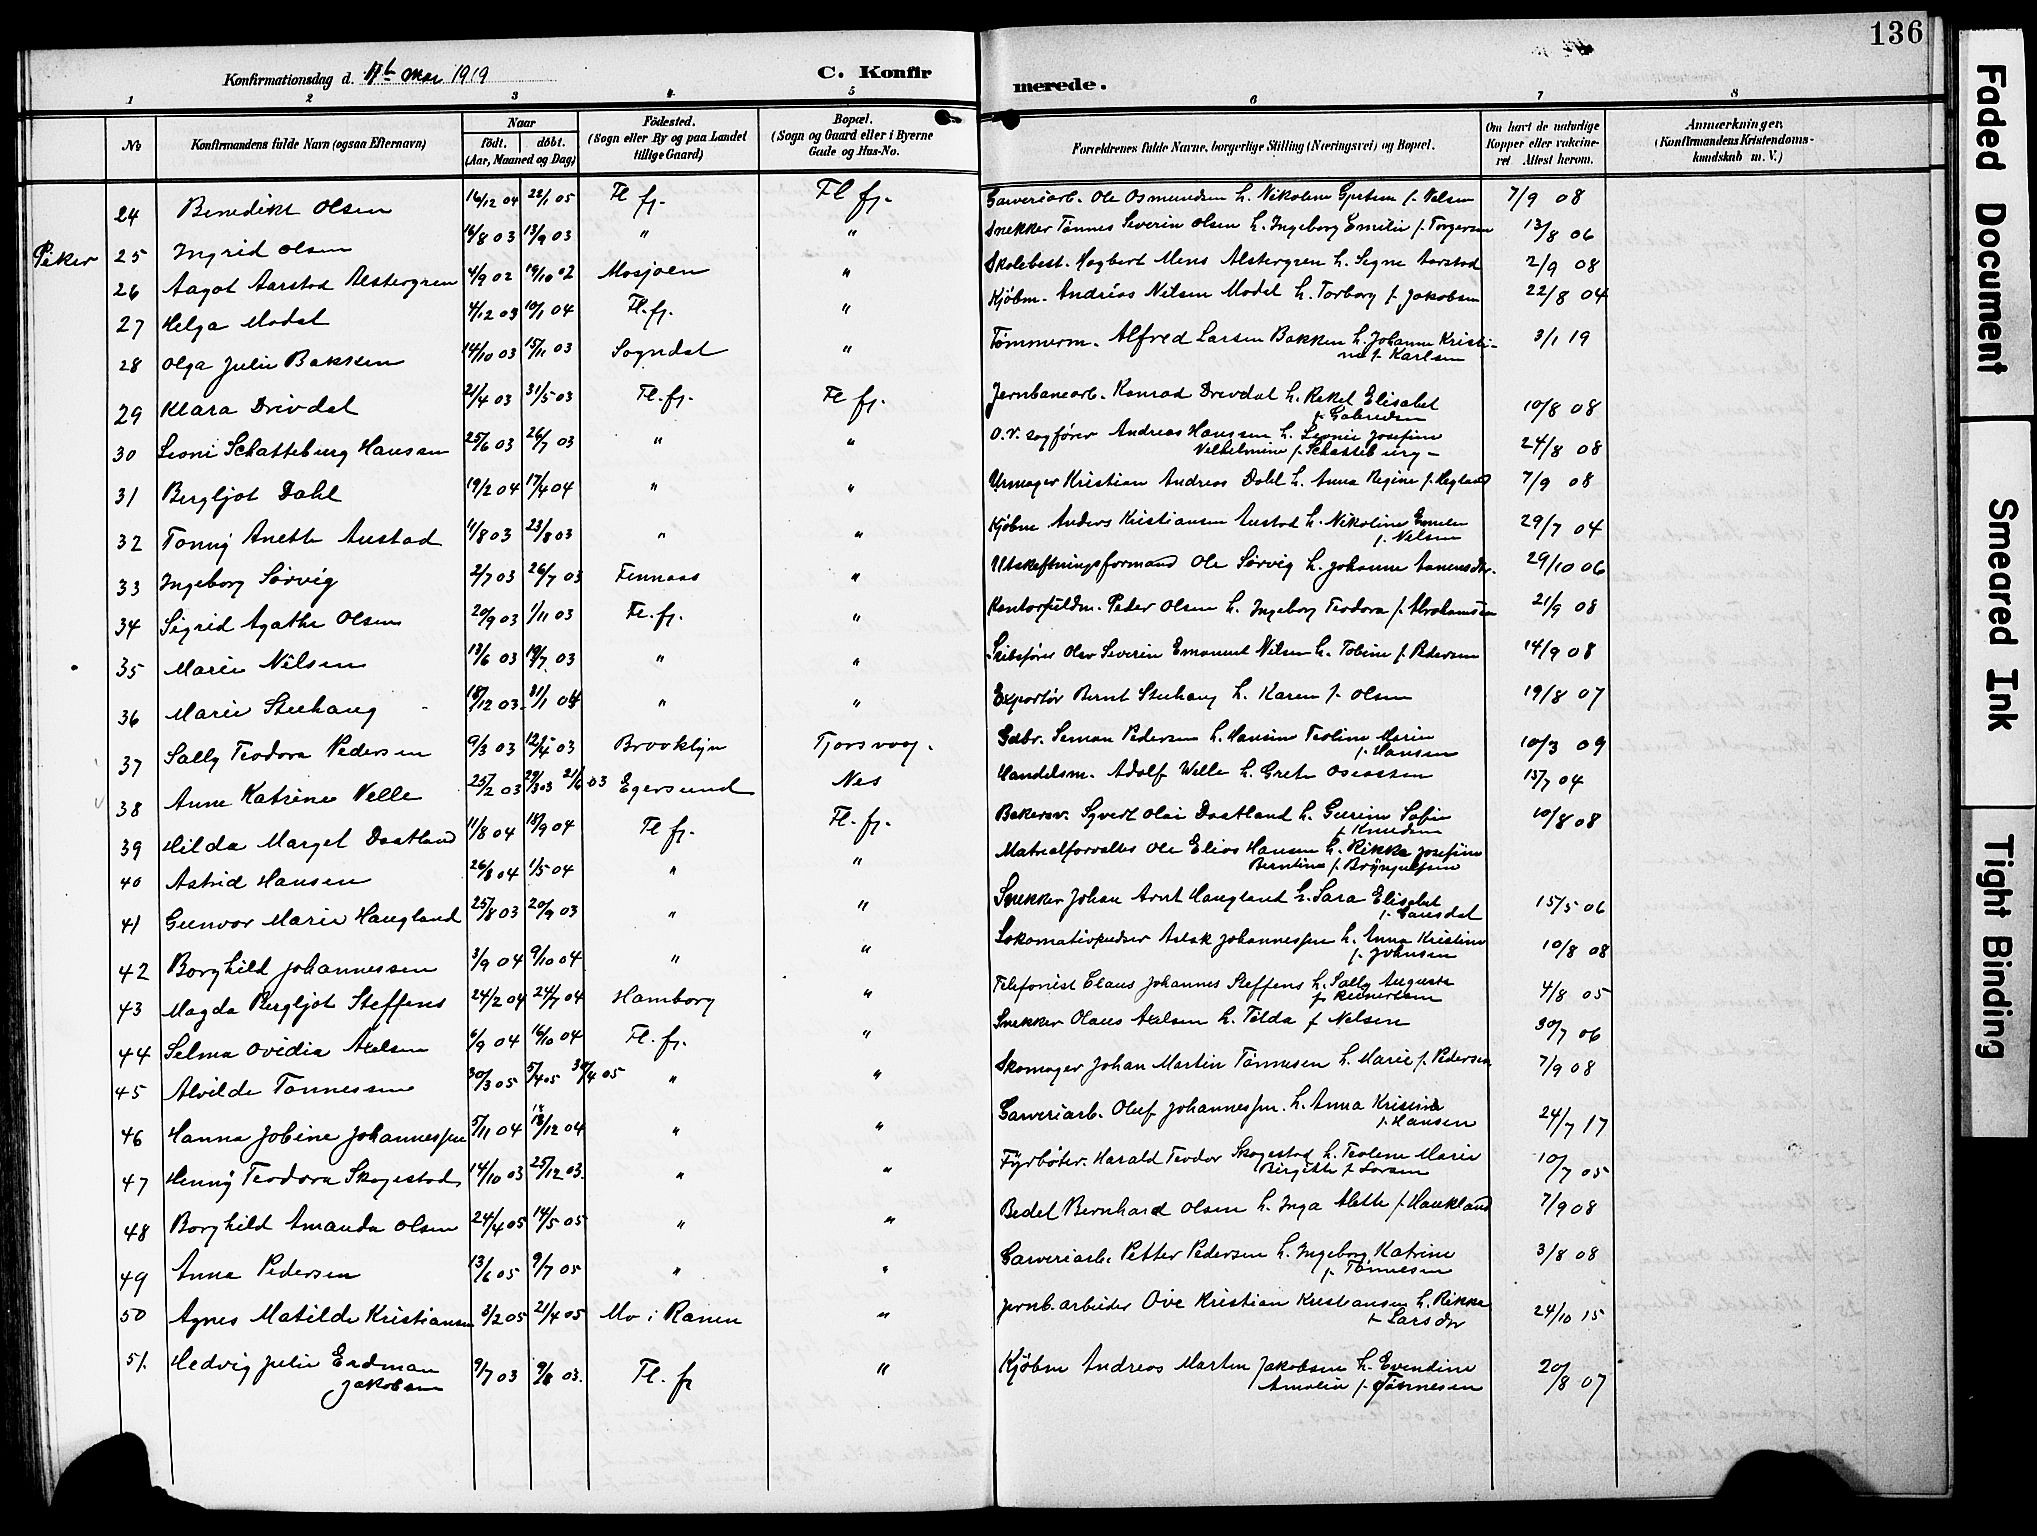 136
Konfirmationsdag d. Mai 1919 C. Konfirmerede.
1 2 3 4 5 6 7 8
No Konfirmandens fulde Navn (ogsaa Efternavn) Naar födt. döbt. (Aar, Maaned og Dag) Födested. (Sogn eller By og paa Landet tillige Gaard) Bopæl. (Sogn og Gaard eller i Byerne Gade og Hus-No. Forældrenes fulde Navne, borgerlige Stilling (Næringsvei) og Bopæl. Om havt de naturlige Kopper eller vakcineret. Attest herom. Anmærkninger, (Konfirmandens Kristendomskundskab m. V.)
24 Benedikt Olsen 16/12 04 22/1 05 Fl fj. Fl fj. Garveriarb. Ole Osmundsen h. Nikoline f. Nelsen 7/9 08
Piker 25 Ingrid Olsen 16/8 03 13/9 03 " " Snekker Tønnes Severin Olsen h. Ingeborg Emilie f. Torgersen 13/8 06
26 Aagot Aarstad Alstergren 4/9 02 19/10 02 Mosjøen " Skolebest. Hagbert Mens Alstergren h. Signe Aarstad 2/9 08
27 Helga Modal 4/12 03 10/1 04 Fl. fj. " Kjøbm. Andreas Nilsen Modal h. Torborg f. Jakobsen 22/8 04
28 Olga Julie Bakken 14/10 03 15/11 03 Sogndal " Tømmerm. Alfred Larsen Bakken h. Johanne Kristi-
ne f. Karlsen 3/1 19
29 Klara Drivdal 21/4 03 31/5 03 Fl. fj. Fl fj. Jernbanearb. Konrad Drivdal h. Rakel Elisabet
f. Gabrielsen 10/8 08
30 Leoni Schatteburg Hansen 25/6 03 26/7 03 " " O.r. sagfører Andreas Hanssen h. Leonie Josefine
Vilhelmine f. Schatteburg - 24/8 08
31 Bergljot Dahl 19/2 04 17/4 04 " " Urmager Kristian Andreas Dahl h. Anna Regine f. Hegland 7/9 08
32 Tonny Anette Austad 11/8 03 23/8 03 " " Kjøbm Anders Kristiansen Austad h. Nikoline Emelie
f. Nilsen 29/7 04
33 Ingeborg Sørvig 2/7 03 26/7 03 Finnaas " Utskiftningsformand Ole Sørvig h. Johanne 29/10 06
34 Sigrid Agathe Olsen 20/9 03 1/11 03 Fl. fj. " Kontorfuldm. Peder Olsen h. Ingeborg Teodora f. Abrahamsen 21/9 08
35 Marie Nilsen 13/6 03 19/7 03 " " Skibsfører Olav Severin Emanuel Nilsen h. Tobine f. Pedersen 14/9 08
36 Marie Stuhaug 18/12 03 31/1 04 " " Exportør Bernt Stuhaug h. Karen f. Olsen 19/8 07
37 Sally Teodora Pedersen 9/3 03 12/4 03 Brooklyn Tjorsvaag. Gdbr. Simon Pedersen h. Hansine Teoline Marie
f. Hansen 10/3 09
38 Anne Katrine Velle 25/2 03 29/3 03 21/6 03 Egersund Nes Handelsm. Adolf Velle h. Grete 13/7 04
39 Hilda Marget Daatland 11/8 04 18/9 04 Fl fj. Fl. fj. Bakersv. Syvert Olai Daatland h. Gurine Sofie
f. Knudsen 10/8 08
40 Astrid Hansen 26/3 04 1/5 04 " " Matrealforvalter Ole Elias Hansen h. Rikke Josefine
Berntine f. Brynjulfsen
41 Gunvor Marie Haugland 25/8 03 20/9 03 " " Snekker Johan Arnt Haugland h. Sara Elisabet
f. Gausdal 15/5 06
42 Borghild Johannessen 3/9 04 9/10 04 " " Lokomativpudser Aslak Johannessen h. Anna Kristine
f. Johnsen 10/8 08
43 Magda Bergljot Steffens 24/2 04 24/7 04 Hamborg " Telefonist Claus Johannes Steffens h. Sally Auguste
f. Reinertsen 4/8 05
44 Selma Ovidia Axelsen 6/9 04 16/10 04 Fl. fj. " Snekker Olaus Axelsen h. Tilda f Nelsen 30/7 06
45 Alvilde Tønnessen 30/3 05 5/4 05 30/4 05 " " Skomager Johan Martin Tønnesen h. Marie f. Pedersen 7/9 08
46 Hanna Jobine Johannessen 5/11 04 18/12 04 " " Garveriarb. Oluf Johannessen. h. Anna Kristine
f. Hansen 24/7 17
47 Henny Teodora Skogestad 14/10 03 25/12 03. " " Fyrbøter. Harald Teodor Skogestad h. Teolene Marie
Birgitte f. Larsen 10/7 05
48 Borghild Amanda Olsen 24/4 05 14/5 05 " " Bedel Bernhard Olsen h. Inga Alette f. Haukland 7/9 08
49 Anna Pedersen 13/6 05 9/7 05 " " Garveriarb. Petter Pedersen h. Ingeborg Katrine
f. Tønnesen 3/8 08
50 Agnes Matilde Kristiansen 3/2 05 21/4 05 Mo i Ranen " jernb. arbeider Ove Kristian Kristiansen h. Rikke
f. Larsdtr 24/10 15
51. Hedvig Julie Erdman
Jakobsen 9/7 03 9/8 03. Fl. fj " Kjøbm Andreas Martin Jakobsen h. Evendine
Amalie f. Tønnesen 20/8 07
Faded Document
Smeared Ink
Tight Binding